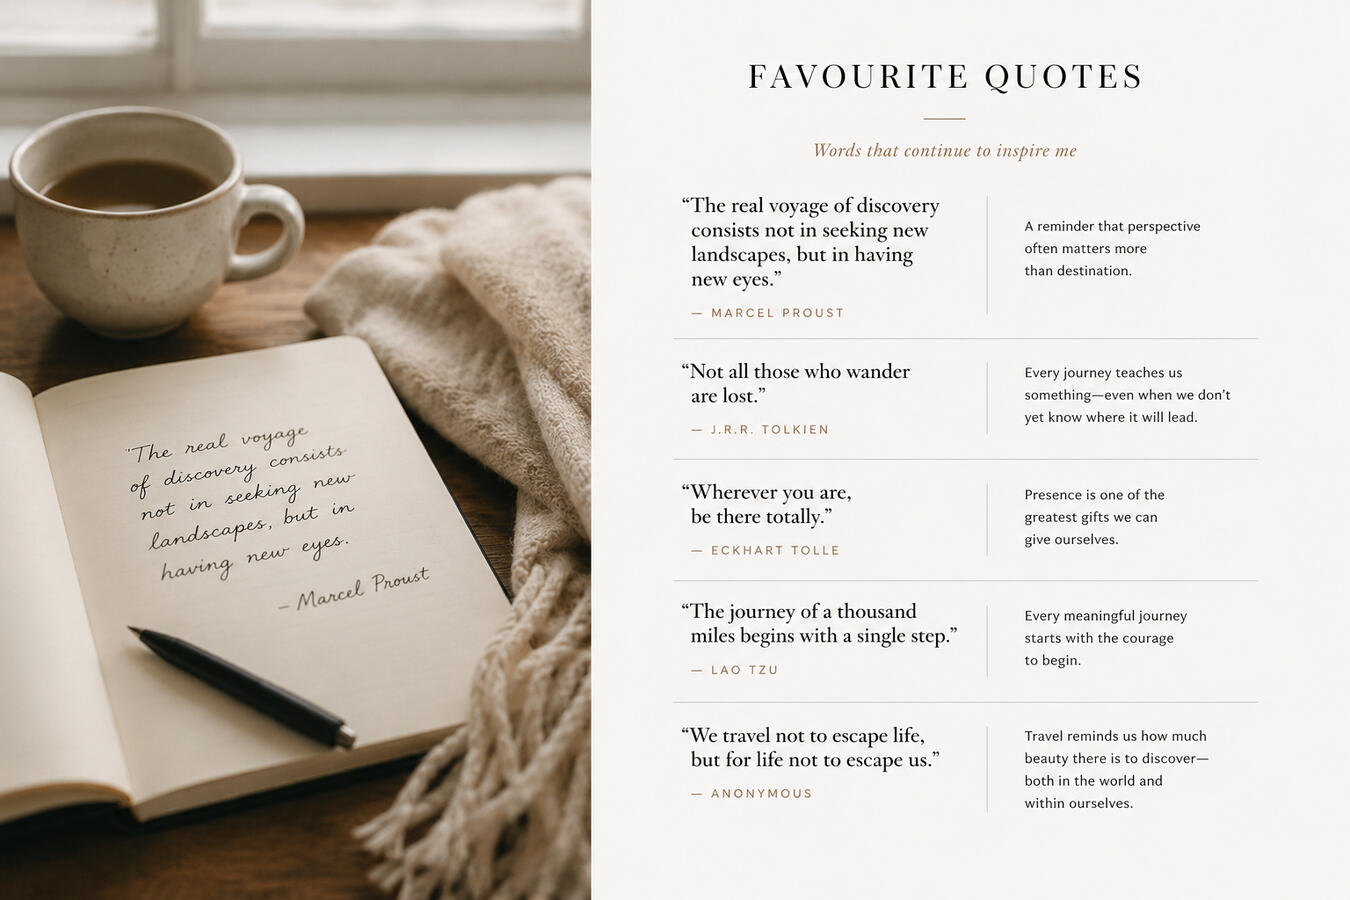 "The real voyage
of discovery consists
not in seeking new
landscapes, but in
having new eyes.
– Marcel Proust
FAVOURITE QUOTES
Words that continue to inspire me
“The real voyage of discovery
consists not in seeking new
landscapes, but in having
new eyes.”
— MARCEL PROUST
A reminder that perspective
often matters more
than destination.
“Not all those who wander
are lost.”
— J.R.R. TOLKIEN
Every journey teaches us
something—even when we don't
yet know where it will lead.
“Wherever you are,
be there totally.”
— ECKHART TOLLE
Presence is one of the
greatest gifts we can
give ourselves.
“The journey of a thousand
miles begins with a single step.”
— LAO TZU
Every meaningful journey
starts with the courage
to begin.
“We travel not to escape life,
but for life not to escape us.”
— ANONYMOUS
Travel reminds us how much
beauty there is to discover—
both in the world and
within ourselves.